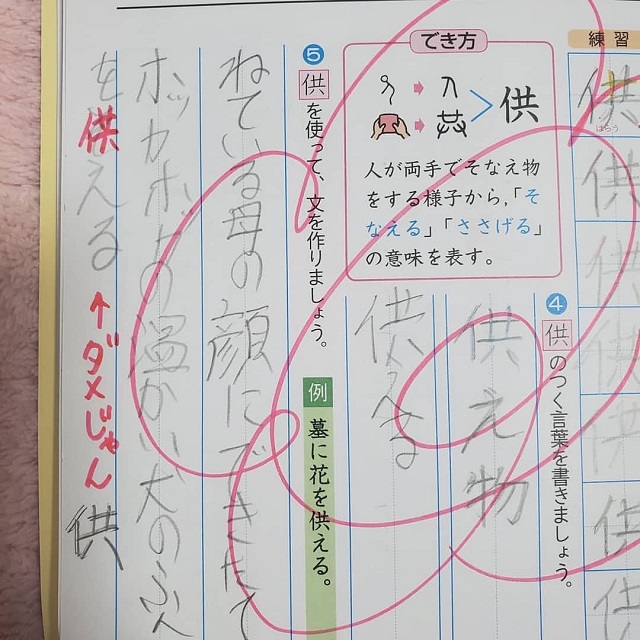 練習
供
はらう
供
供
供
供
供
供
④
供のつく言葉を書きましょう。
供え物
供える
でき方
供
人が両手でそなえ物
をする様子から、「そ
なえる」「ささげる」
の意味を表す。
⑤
供を使って、文を作りましょう。
例 墓に花を供える。
ねている母の顔にできたて
ホッカホッカの温かい犬のふん
を供える
↑ダメじゃん
供